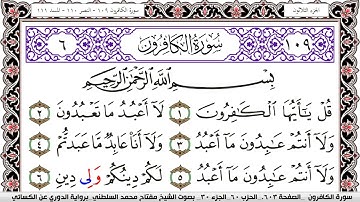 الجزء الثلاثون
سورة الكافرون ١٠٩ - النصر ١١٠ - المسد ١١١
١٠٩ سُورَةُ الكَافِرُونَ ٦
بِسْمِ اللَّهِ الرَّحْمَٰنِ الرَّحِيمِ
قُلْ يَٰٓأَيُّهَا ٱلْكَٰفِرُونَ ١ لَآ أَعْبُدُ مَا تَعْبُدُونَ ٢
وَلَآ أَنتُمْ عَٰبِدُونَ مَآ أَعْبُدُ ٣ وَلَآ أَنَا۠ عَابِدٌ مَّا عَبَدتُّمْ ٤
وَلَآ أَنتُمْ عَٰبِدُونَ مَآ أَعْبُدُ ٥ لَكُمْ دِينُكُمْ وَلِى دِينِ
سورة الكافرون . الصفحة ٦٠٣ . الحزب ٦٠ . الجزء ٣٠ . بصوت الشيخ مفتاح محمد السلطني . برواية الدوري عن الكسائي